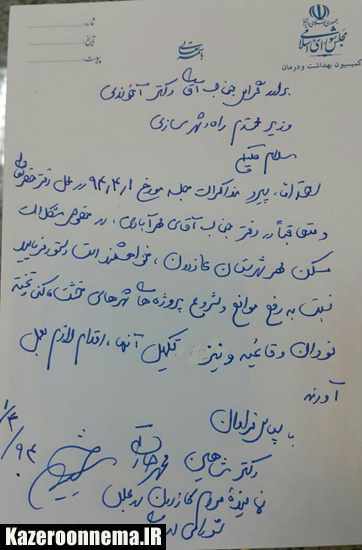 جمهوری اسلامی ایران
مجلس شورای اسلامی
کمیسیون بهداشت و درمان
شماره:
تاریخ:
پیوست:
باسمه تعالی
برادر گرامی جناب آقای دکتر آخوندی
وزیر محترم راه و شهرسازی
سلام علیکم
احتراماً، پیرو مذاکرات جلسه مورخ ۹۴/۴/۱ در محل دفتر
و متعاقباً در دفتر جناب آقای در خصوص مشکلات
مسکن مهر شهرستان کازرون، خواهشمند است دستور فرمایید
نسبت به رفع موانع و شروع پروژه های شهرهای خشت، کنارتخته
نودان و قائمیه و نیز تکمیل آنها، اقدام لازم بعمل
آورند
با سپاس فراوان
دکتر شاهین محمدصادقی
نماینده مردم کازرون در مجلس
شورای اسلامی
۹۴/۴/۱
Kazeroonnema.IR